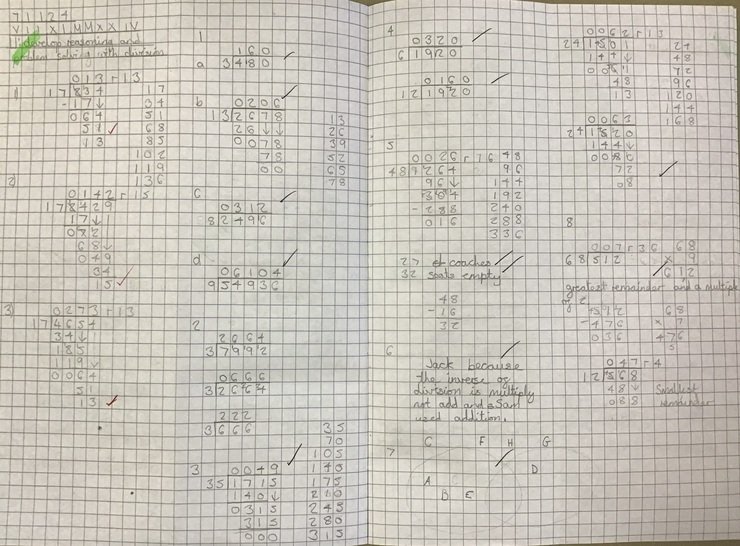 7 1 1 2 4
V I I X I M M X X I V
develop reasoning and
problem solving with division
1
0 1 3 r 1 3
1 7 2 3 4
- 1 7 ↓
0 6 4
5 1
1 3
1 7
3 4
5 1
6 8
8 5
1 0 2
1 1 9
1 3 6
2
0 1 4 2 r 1 5
1 7 2 4 2 9
1 7 ↓
0 7 2
6 8 ↓
0 4 9
3 4
1 5
3)
0 2 7 3 r 1 3
1 7 4 6 5 4
3 4 ↓
1 2 5
1 1 9 ↓
0 0 6 4
5 1
1 3
1
a
1 6 0
3 4 8 0
b
0 2 0 6
1 3 2 6 7 8
2 6 ↓ ↓
0 0 7 8
7 8
0 0
1 3
2 6
3 9
5 2
6 5
7 8
c
0 3 1 2
8 2 4 9 6
d
0 6 1 0 4
9 5 4 9 3 6
2
2 6 6 4
3 7 9 9 2
0 6 6 6
3 2 6 6 4
2 2 2
3 6 6 6
3
0 0 4 9
3 5 1 7 1 5
1 4 0 ↓
0 3 1 5
3 1 5
0 0 0
3 5
7 0
1 0 5
1 4 0
1 7 5
2 1 0
2 4 5
2 8 0
3 1 5
4
0 3 2 0
6 1 9 2 0
0 1 6 0
1 2 1 9 2 0
5
0 0 2 6 r 7 6
4 8 1 2 6 4
9 6 ↓
3 0 4
- 2 8 8
0 1 6
4 8
9 6
1 4 4
1 9 2
2 4 0
2 8 8
3 3 6
2 7 of coaches
3 2 seats empty
4 8
- 1 6
3 2
6
Jack because
the inverse of
division is multiply
not add and Sam
used addition.
7
C F H G
D
A
B E
0 0 6 2 r 1 3
2 4 1 5 0 1
1 4 4 ↓
0 0 6 1
4 8
1 3
2 4
4 8
7 2
9 6
1 2 0
1 4 4
1 6 8
0 0 6 3
2 4 1 5 2 0
1 4 4 ↓
0 0 8 0
7 2
0 8
8
0 0 7 r 3 6
6 8 5 1 2
6 8
x 9
6 1 2
greatest remainder and a multiple
of 2
5 1 2
- 4 7 6
0 3 6
6 8
x 7
4 7 6
5
0 4 7 r 4
1 2 5 6 8
4 8 ↓
0 8 8
Smallest
remainder